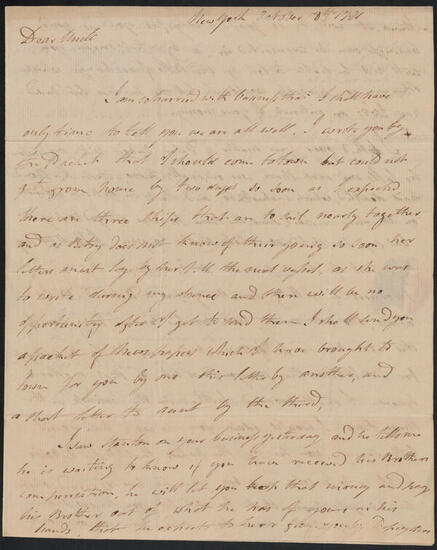 New York October
Dear Uncle
I am so hurried with business that I shall have
only time to tell you we are all well. I wrote you by
that I should come to town but could not
get from home by two days so soon as I expected
there are three ships that are to sail nearly together
and as Betsy does not know of their going so soon her
letters must lay by here till the next vessel, as she was
to write during my absence and there will be no
opportunity after I get to send them I shall send you
a packet of News papers which I have brought to
town for you by one this letter by another, and
a short letter to aunt by the third,
I saw Stanton on your business yesterday, and he tells me
he is waiting to know if you have received his Brothers
compensation, he will let you keep that money and pay
his Brother out of what he has of yours in his
hands, that he expects to hear from you by